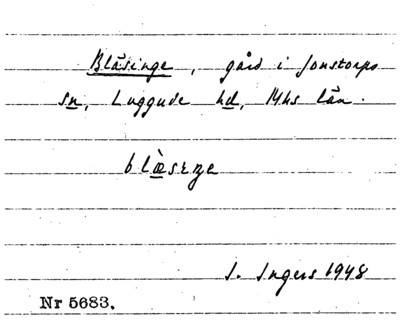 Bläsinge, gård i Jonstorps
sn, Luggude hd, Mhs län.
blæseŋe
I. Ingers 1948
Nr 5683.